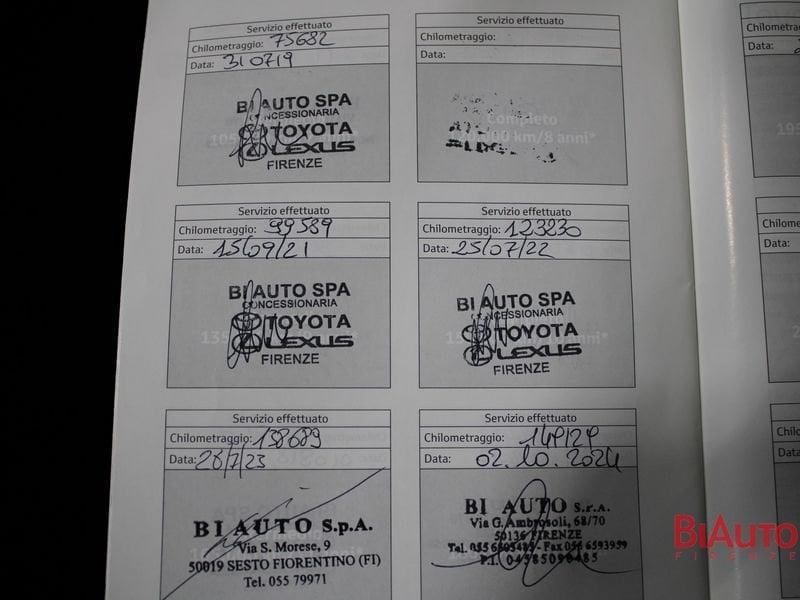 Servizio effettuato
Chilometraggio: 75682
Data: 310719
BI AUTO SPA
CONCESSIONARIA
TOYOTA
LEXUS
FIRENZE
Servizio effettuato
Chilometraggio:
Data:
Completo
120.000 km/8 anni*
Servizio effettuato
Chilometraggio: 99589
Data: 15/09/21
BI AUTO SPA
CONCESSIONARIA
TOYOTA
LEXUS
FIRENZE
Servizio effettuato
Chilometraggio: 123230
Data: 25/07/22
BI AUTO SPA
CONCESSIONARIA
TOYOTA
LEXUS
FIRENZE
Servizio effettuato
Chilometraggio: 138689
Data: 26/7/23
BI AUTO S.p.A.
Via S. Morese, 9
50019 SESTO FIORENTINO (FI)
Tel. 055 79971
Servizio effettuato
Chilometraggio:
Data: 02.10.2024
BI AUTO S.r.A.
Via G. Ambrosoli, 68/70
50136 FIRENZE
Chilom
Data:
BIAUTO
FIRENZE